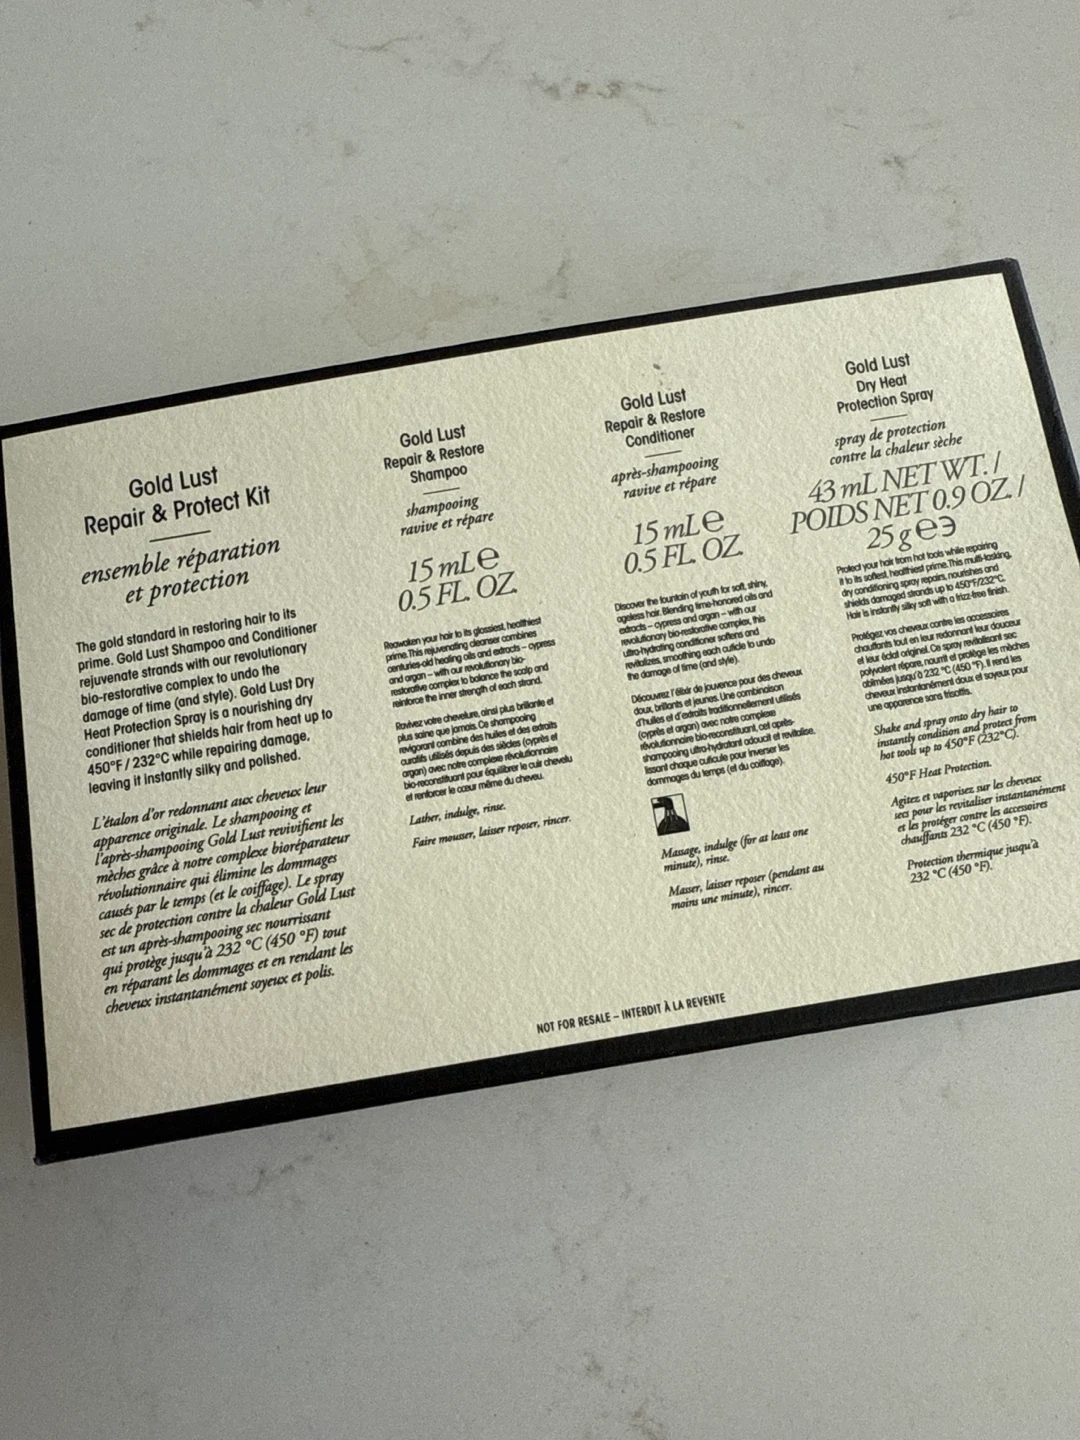 Gold Lust
Repair & Protect Kit
ensemble réparation
et protection
The gold standard in restoring hair to its
prime. Gold Lust Shampoo and Conditioner
rejuvenate strands with our revolutionary
bio-restorative complex to undo the
damage of time (and style). Gold Lust Dry
Heat Protection Spray is a nourishing dry
conditioner that shields hair from heat up to
450°F / 232°C while repairing damage,
leaving it instantly silky and polished.
L'étalon d'or redonnant aux cheveux leur
apparence originale. Le shampooing et
l'après-shampooing Gold Lust revivifient les
mèches grâce à notre complexe bioréparateur
révolutionnaire qui élimine les dommages
causés par le temps (et le coiffage). Le spray
sec de protection contre la chaleur Gold Lust
est un après-shampooing sec nourrissant
qui protège jusqu'à 232 °C (450 °F) tout
en réparant les dommages et en rendant les
cheveux instantanément soyeux et polis.
Gold Lust
Repair & Restore
Shampoo
shampooing
ravive et répare
15 mL e
0.5 FL. OZ.
Reawaken your hair to its glossiest, healthiest
prime. This rejuvenating cleanser combines
centuries-old healing oils and extracts – cypress
and argan – with our revolutionary bio-
restorative complex to balance the scalp and
reinforce the inner strength of each strand.
Ravivez votre chevelure, ainsi plus brillante et
plus saine que jamais. Ce shampooing
revigorant combine des huiles et des extraits
curatifs utilisés depuis des siècles (cyprès et
argan) avec notre complexe révolutionnaire
bio-reconstituant pour équilibrer le cuir chevelu
et renforcer le cœur même du cheveu.
Lather, indulge, rinse.
Faire mousser, laisser reposer, rincer.
Gold Lust
Repair & Restore
Conditioner
après-shampooing
ravive et répare
15 mL e
0.5 FL. OZ.
Discover the fountain of youth for soft, shiny,
ageless hair. Blending time-honored oils and
extracts – cypress and argan – with our
revolutionary bio-restorative complex, this
ultra-hydrating conditioner softens and
revitalizes, smoothing each cuticle to undo
the damage of time (and style).
Découvrez l'élixir de jouvence pour des cheveux
doux, brillants et jeunes. Une combinaison
d'huiles et d'extraits traditionnellement utilisés
(cyprès et argan) avec notre complexe
révolutionnaire bio-reconstituant, cet après-
shampooing ultra-hydratant adoucit et revitalise,
lissant chaque cuticule pour inverser les
dommages du temps (et du coiffage).
Massage, indulge (for at least one
minute), rinse.
Masser, laisser reposer (pendant au
moins une minute), rincer.
Gold Lust
Dry Heat
Protection Spray
spray de protection
contre la chaleur sèche
43 mL NET WT. /
POIDS NET 0.9 OZ. /
25 g e
Protect your hair from hot tools while repairing
it to its softest, healthiest prime. This multi-tasking,
dry conditioning spray repairs, nourishes and
shields damaged strands up to 450°F/232°C.
Hair is instantly silky soft with a frizz-free finish.
Protégez vos cheveux contre les accessoires
chauffants tout en leur redonnant leur douceur
et leur éclat originel. Ce spray revitalisant sec
polyvalent répare, nourrit et protège les mèches
abîmées jusqu'à 232 °C (450 °F). Il rend les
cheveux instantanément doux et soyeux pour
une apparence sans frisottis.
Shake and spray onto dry hair to
instantly condition and protect from
hot tools up to 450°F (232°C).
450°F Heat Protection.
Agitez et vaporisez sur les cheveux
secs pour les revitaliser instantanément
et les protéger contre les accessoires
chauffants 232 °C (450 °F).
Protection thermique jusqu'à
232 °C (450 °F).
NOT FOR RESALE – INTERDIT À LA REVENTE